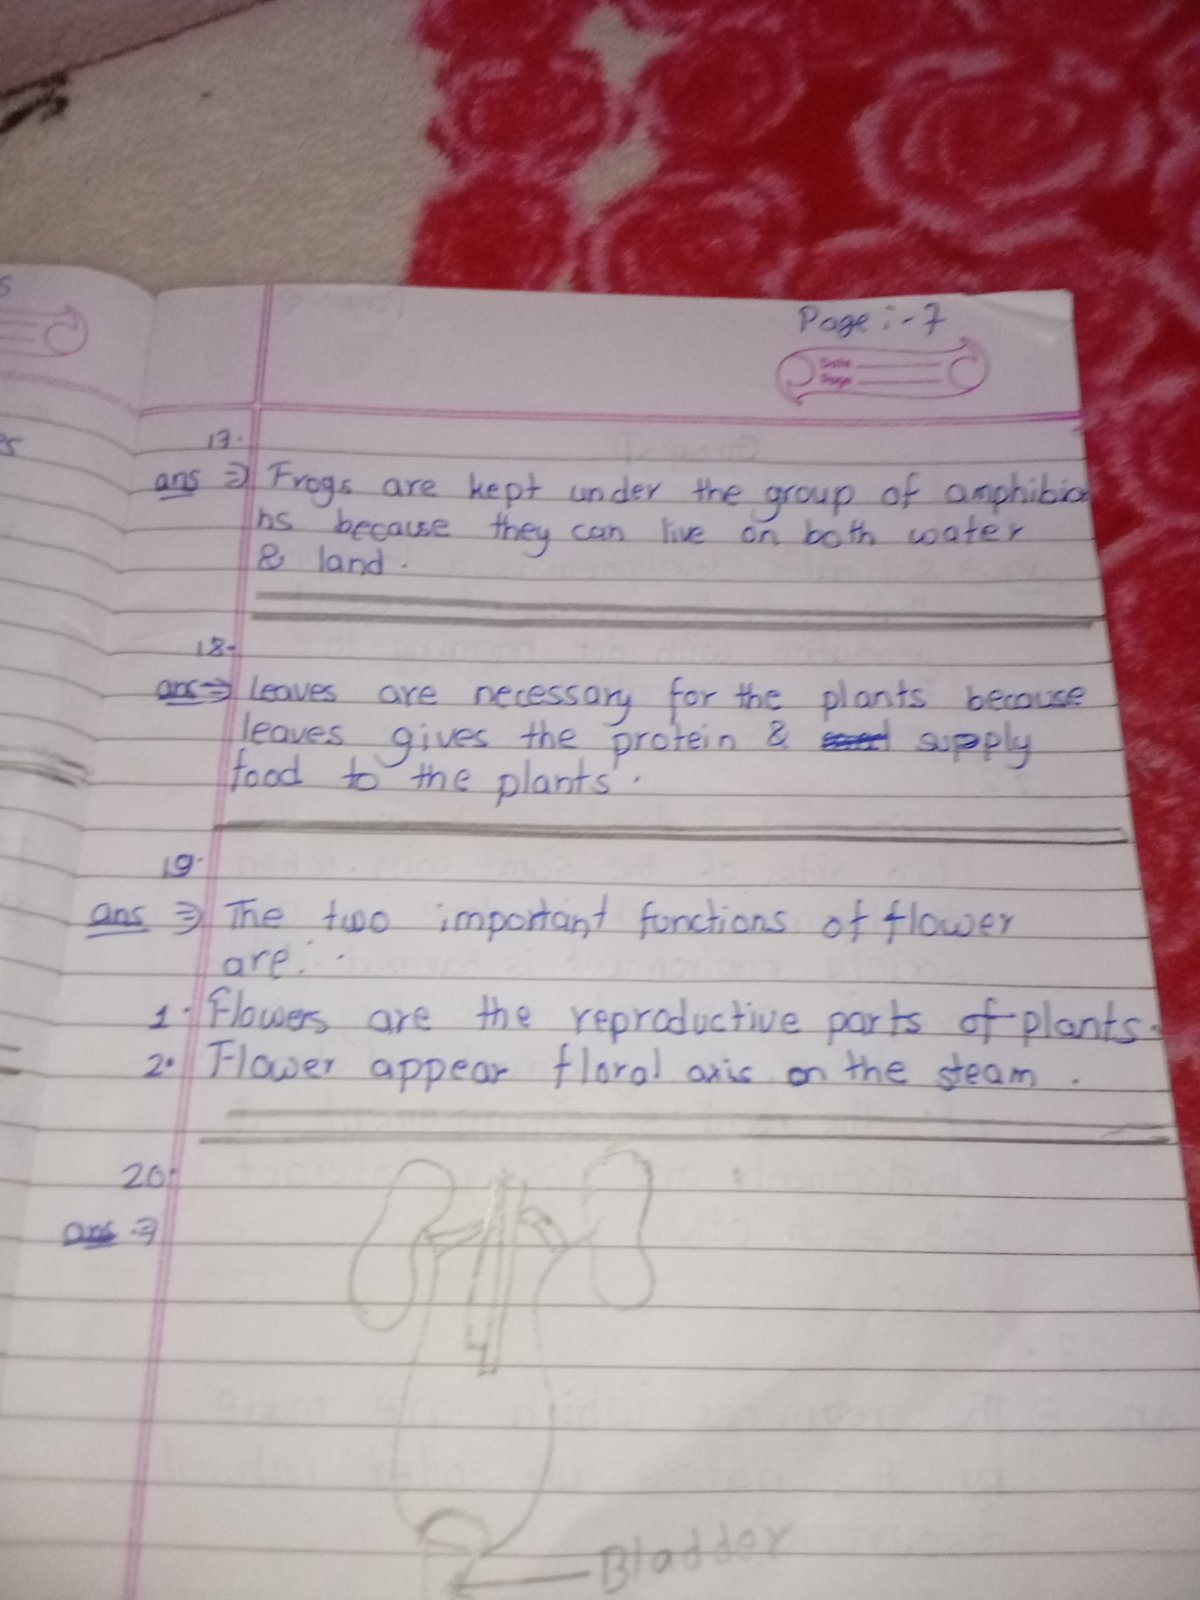 s
Page :- 7
Date
Page
es
17.
ans ⇒ Frogs are kept under the group of amphibia
ns because they can live on both water
& land .
18-
ans ⇒ leaves are necessary for the plants because
leaves gives the protein & supply
food to the plants .
19.
ans ⇒ The two important functions of flower
are. .
1. Flowers are the reproductive parts of plants.
2. Flower appear floral axis on the steam .
20.
ans ⇒
Bladder